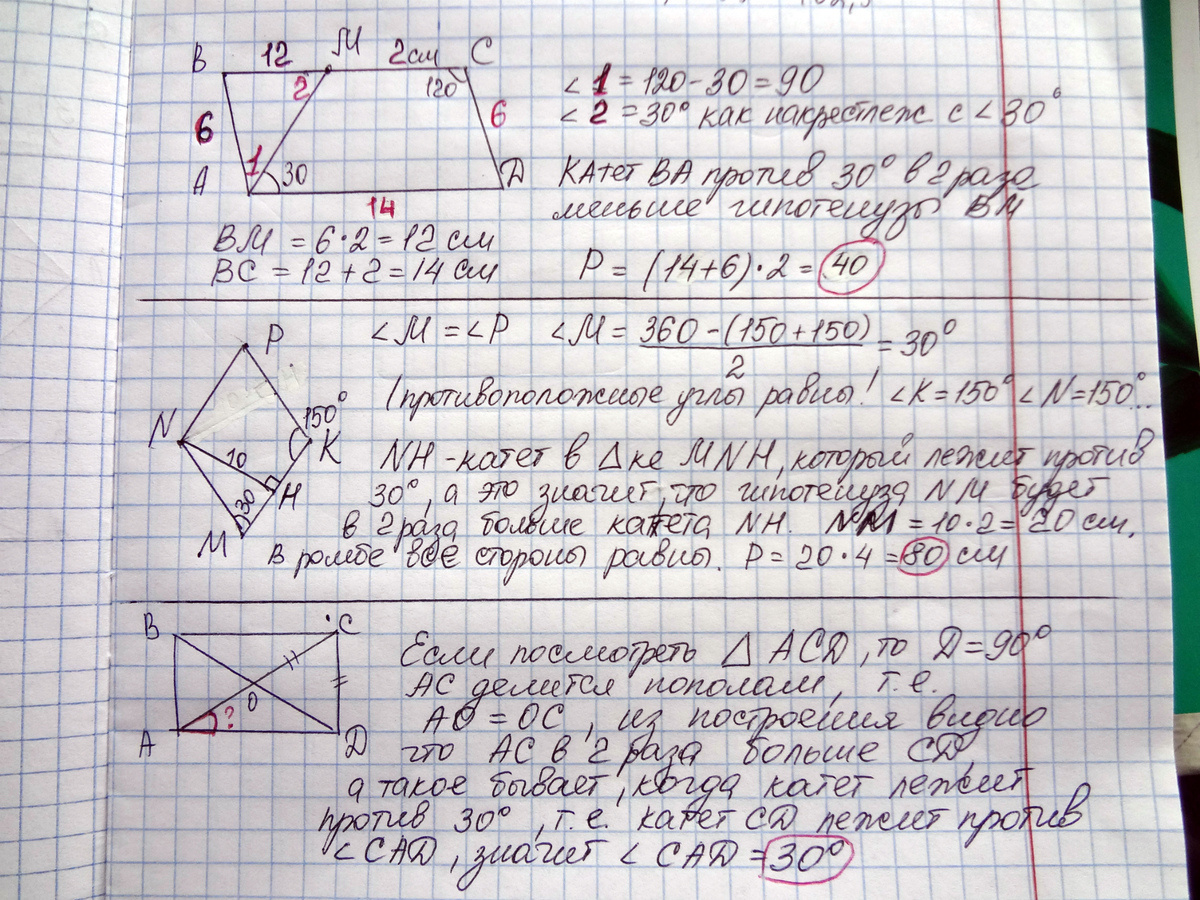 B 12 M 2см C
2 120
6 6
1 30
A D
14
∠1 = 120-30 = 90
∠2 = 30° как накрестлеж с ∠30°
КАтет BA против 30° в 2 раза
меньше гипотенузы BM
BM = 6·2 = 12 см
BC = 12+2 = 14 см
P = (14+6)·2 = 40
P
N 150°
10 K
30 H
M
∠M = ∠P ∠M = 360-(150+150)/2 = 30°
(противоположные углы равны! ∠K=150° ∠N=150°...
NH-катет в Δке MNH, который лежит против
30°, а это значит, что гипотенуза NM будет
в 2 раза больше катета NH. NM = 10·2 = 20 см.
В ромбе все стороны равны. P = 20·4 = 80 см
B C
O
A ? D
Если посмотреть Δ ACD, то D=90°
AC делится пополам, т.е.
AO = OC, из построения видно
что AC в 2 раза больше CD,
а такое бывает, когда катет лежит
против 30°, т.е. катет CD лежит против
∠CAD, значит ∠CAD = 30°